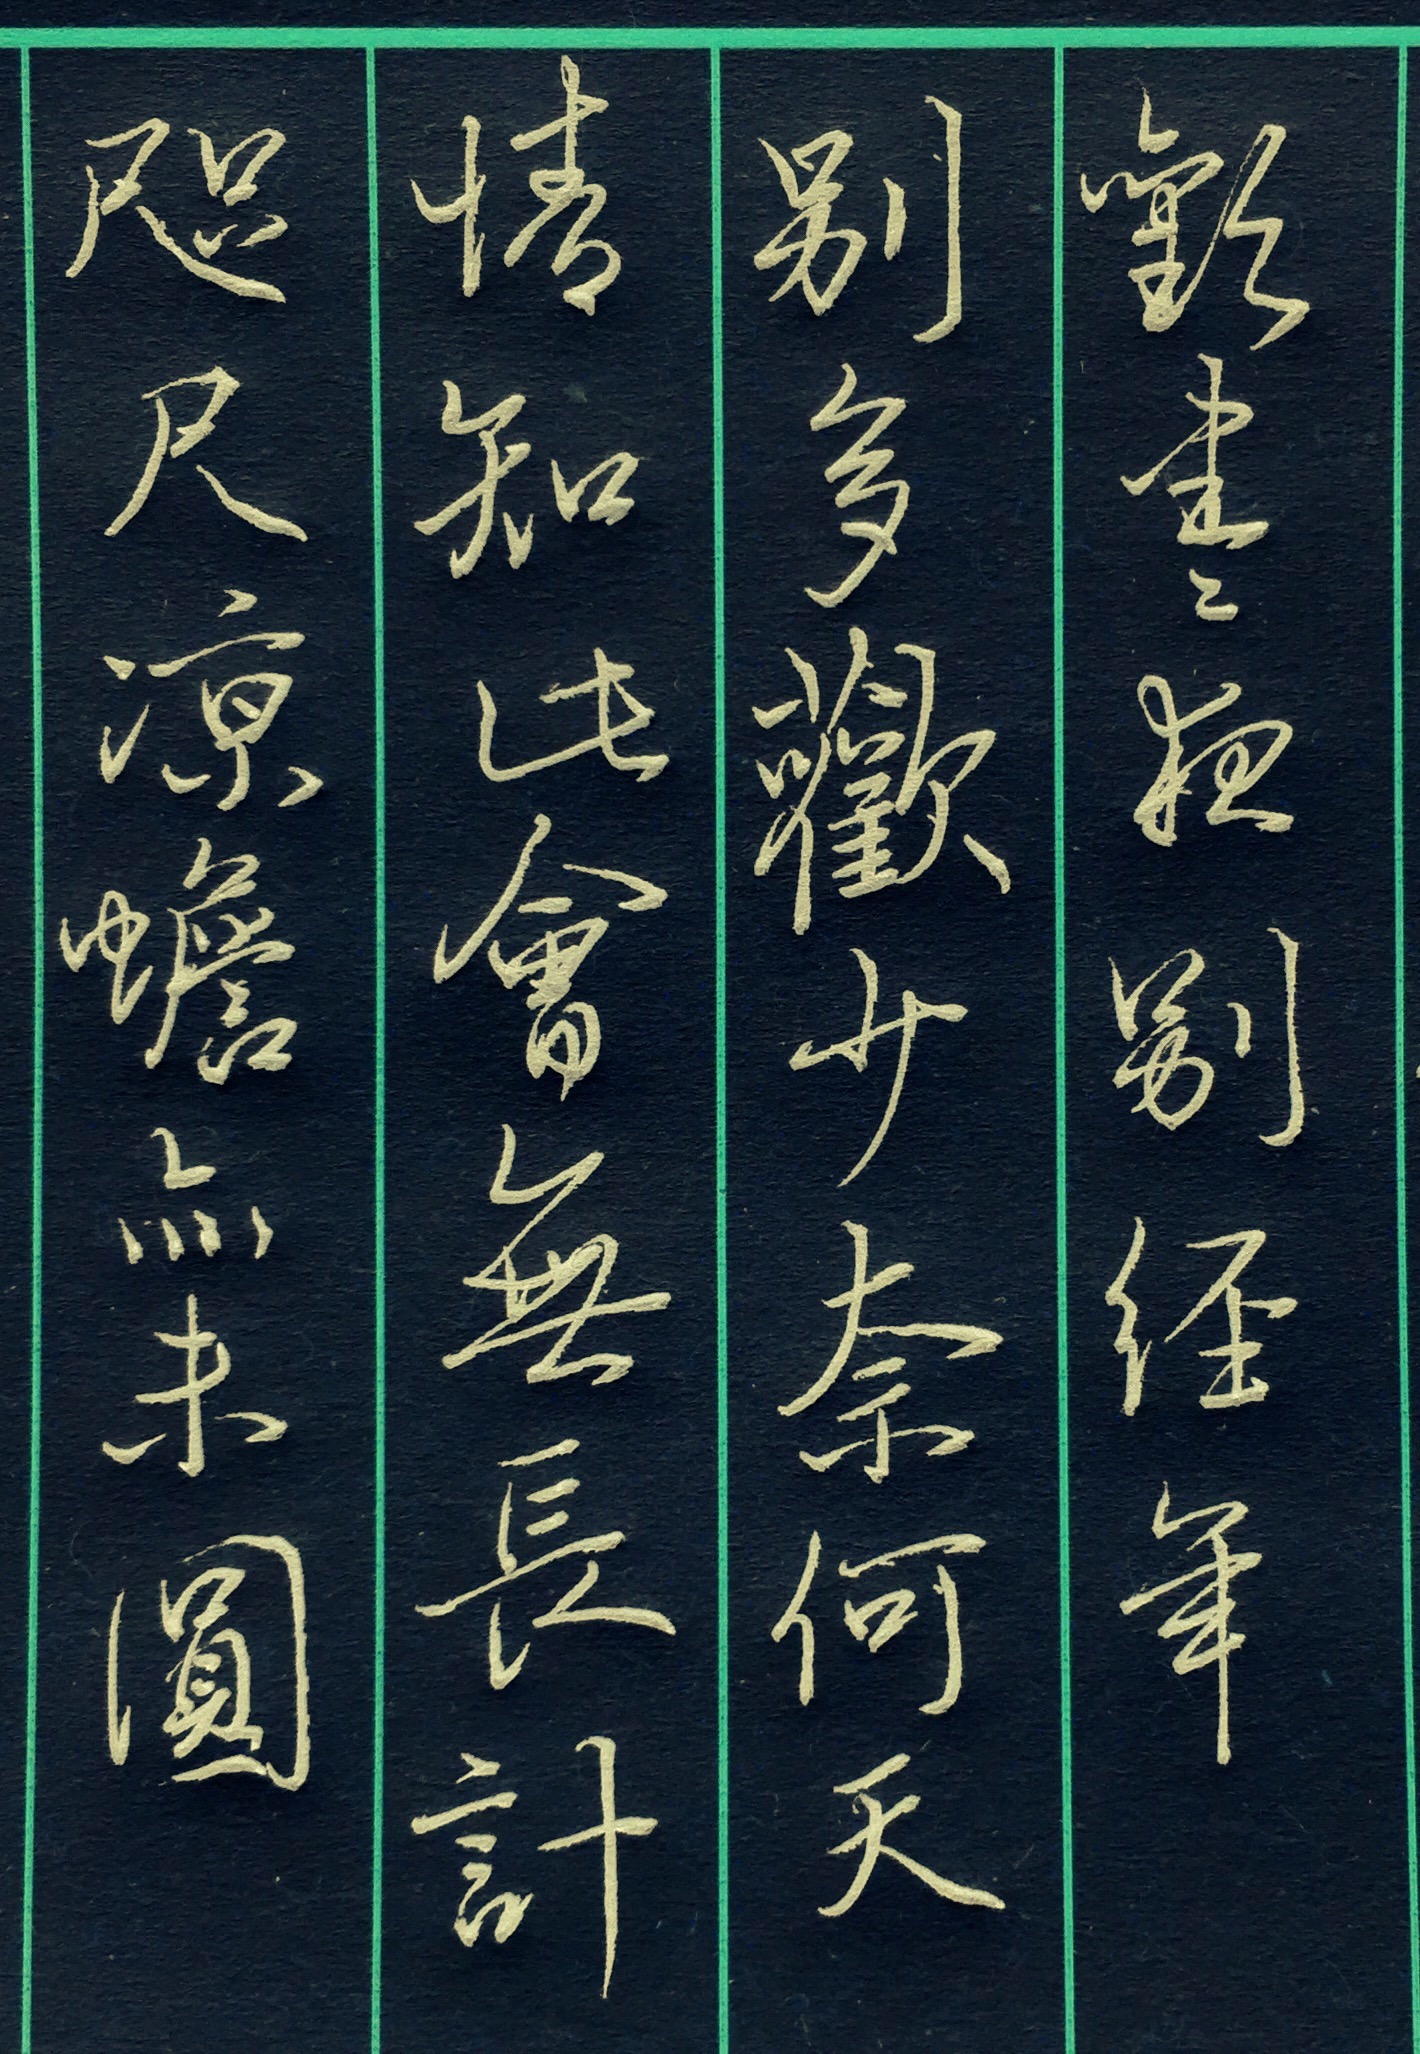 歡盡夜别經年
别多歡少奈何天
情知此會無長計
咫尺凉蟾亦未圓